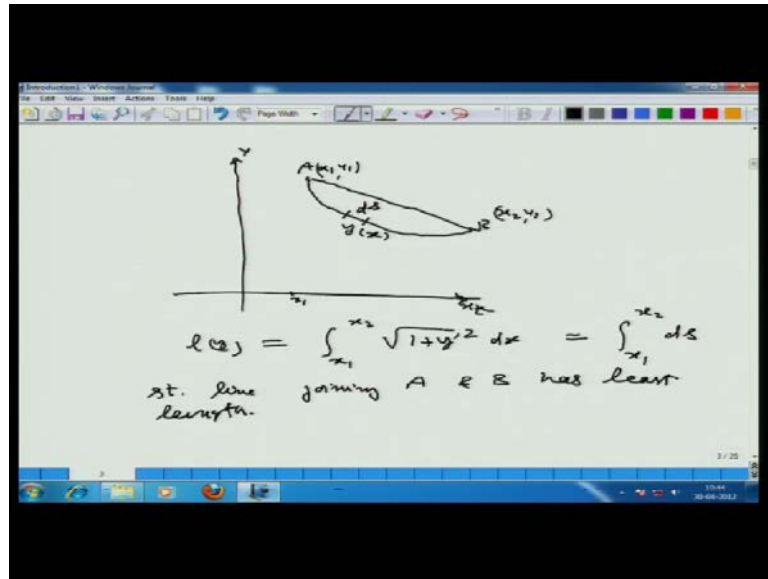 Introduction1 - Windows Journal
File Edit View Insert Actions Tools Help
Page Width
B I
Y
A(x₁,y₁)
ds
y(x)
B (x₂,y₂)
x₁
l(y) = ∫_{x₁}^{x₂} √(1+y'²) dx = ∫_{x₁}^{x₂} ds
st. line joining A & B has least
length.
3 / 25
3
10:44
30-04-2012